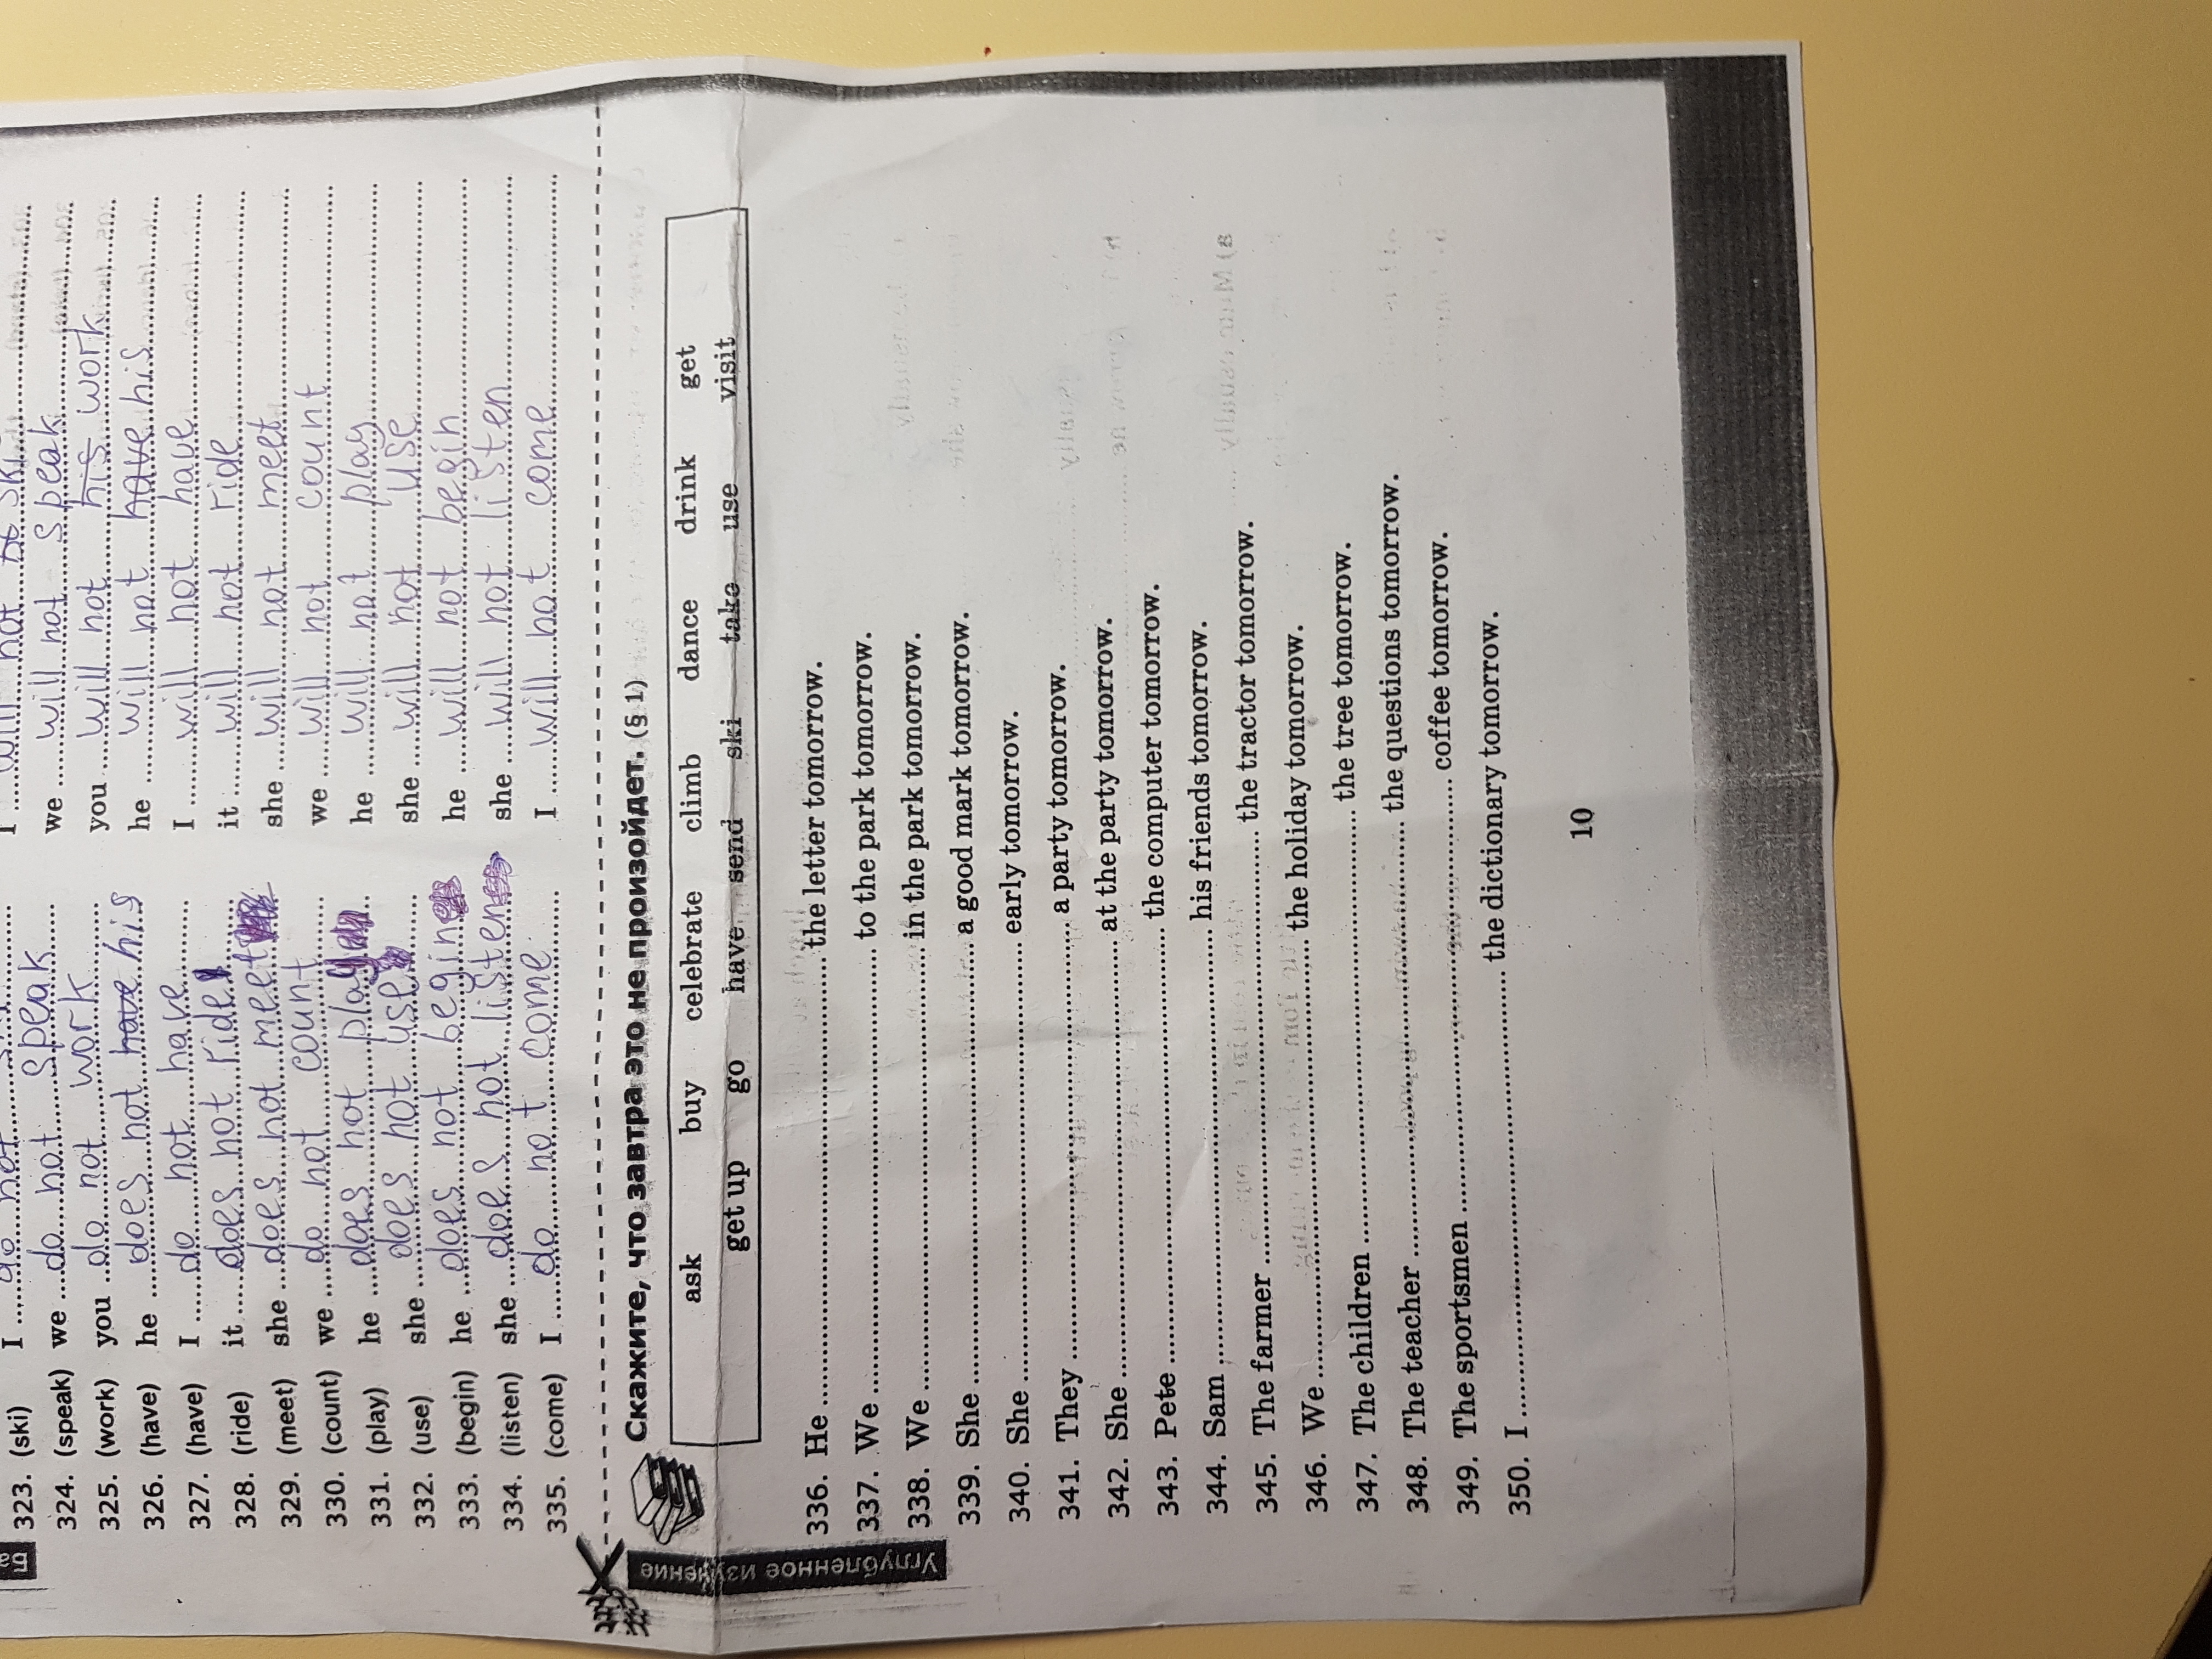 323. (ski) I ..... do not ..... I ..... will not ski
324. (speak) we ... do not speak ..... we ..... will not speak .....
325. (work) you ... do not work ..... you ..... will not his work .....
326. (have) he ..... does not have his he ..... will not have his .....
327. (have) I ..... do not have ..... I ..... will not have .....
328. (ride) it ..... does not ride ..... it ..... will not ride .....
329. (meet) she ... does not meet ..... she ... will not meet .....
330. (count) we ..... do not count ..... we ..... will not count .....
331. (play) he ..... does not play ..... he ..... will not play .....
332. (use) she ... does not use ..... she ..... will not use .....
333. (begin) he ..... does not begin ..... he ..... will not begin .....
334. (listen) she ... does not listen ..... she ... will not listen .....
335. (come) I ..... do not come ..... I ..... will not come .....
Углубленное изучение
Скажите, что завтра это не произойдет. (§ 1)
ask buy celebrate climb dance drink get
get up go have send ski take use visit
336. He ..... the letter tomorrow.
337. We ..... to the park tomorrow.
338. We ..... in the park tomorrow.
339. She ..... a good mark tomorrow.
340. She ..... early tomorrow.
341. They ..... a party tomorrow.
342. She ..... at the party tomorrow.
343. Pete ..... the computer tomorrow.
344. Sam ..... his friends tomorrow.
345. The farmer ..... the tractor tomorrow.
346. We ..... the holiday tomorrow.
347. The children ..... the tree tomorrow.
348. The teacher ..... the questions tomorrow.
349. The sportsmen ..... coffee tomorrow.
350. I ..... the dictionary tomorrow.
10